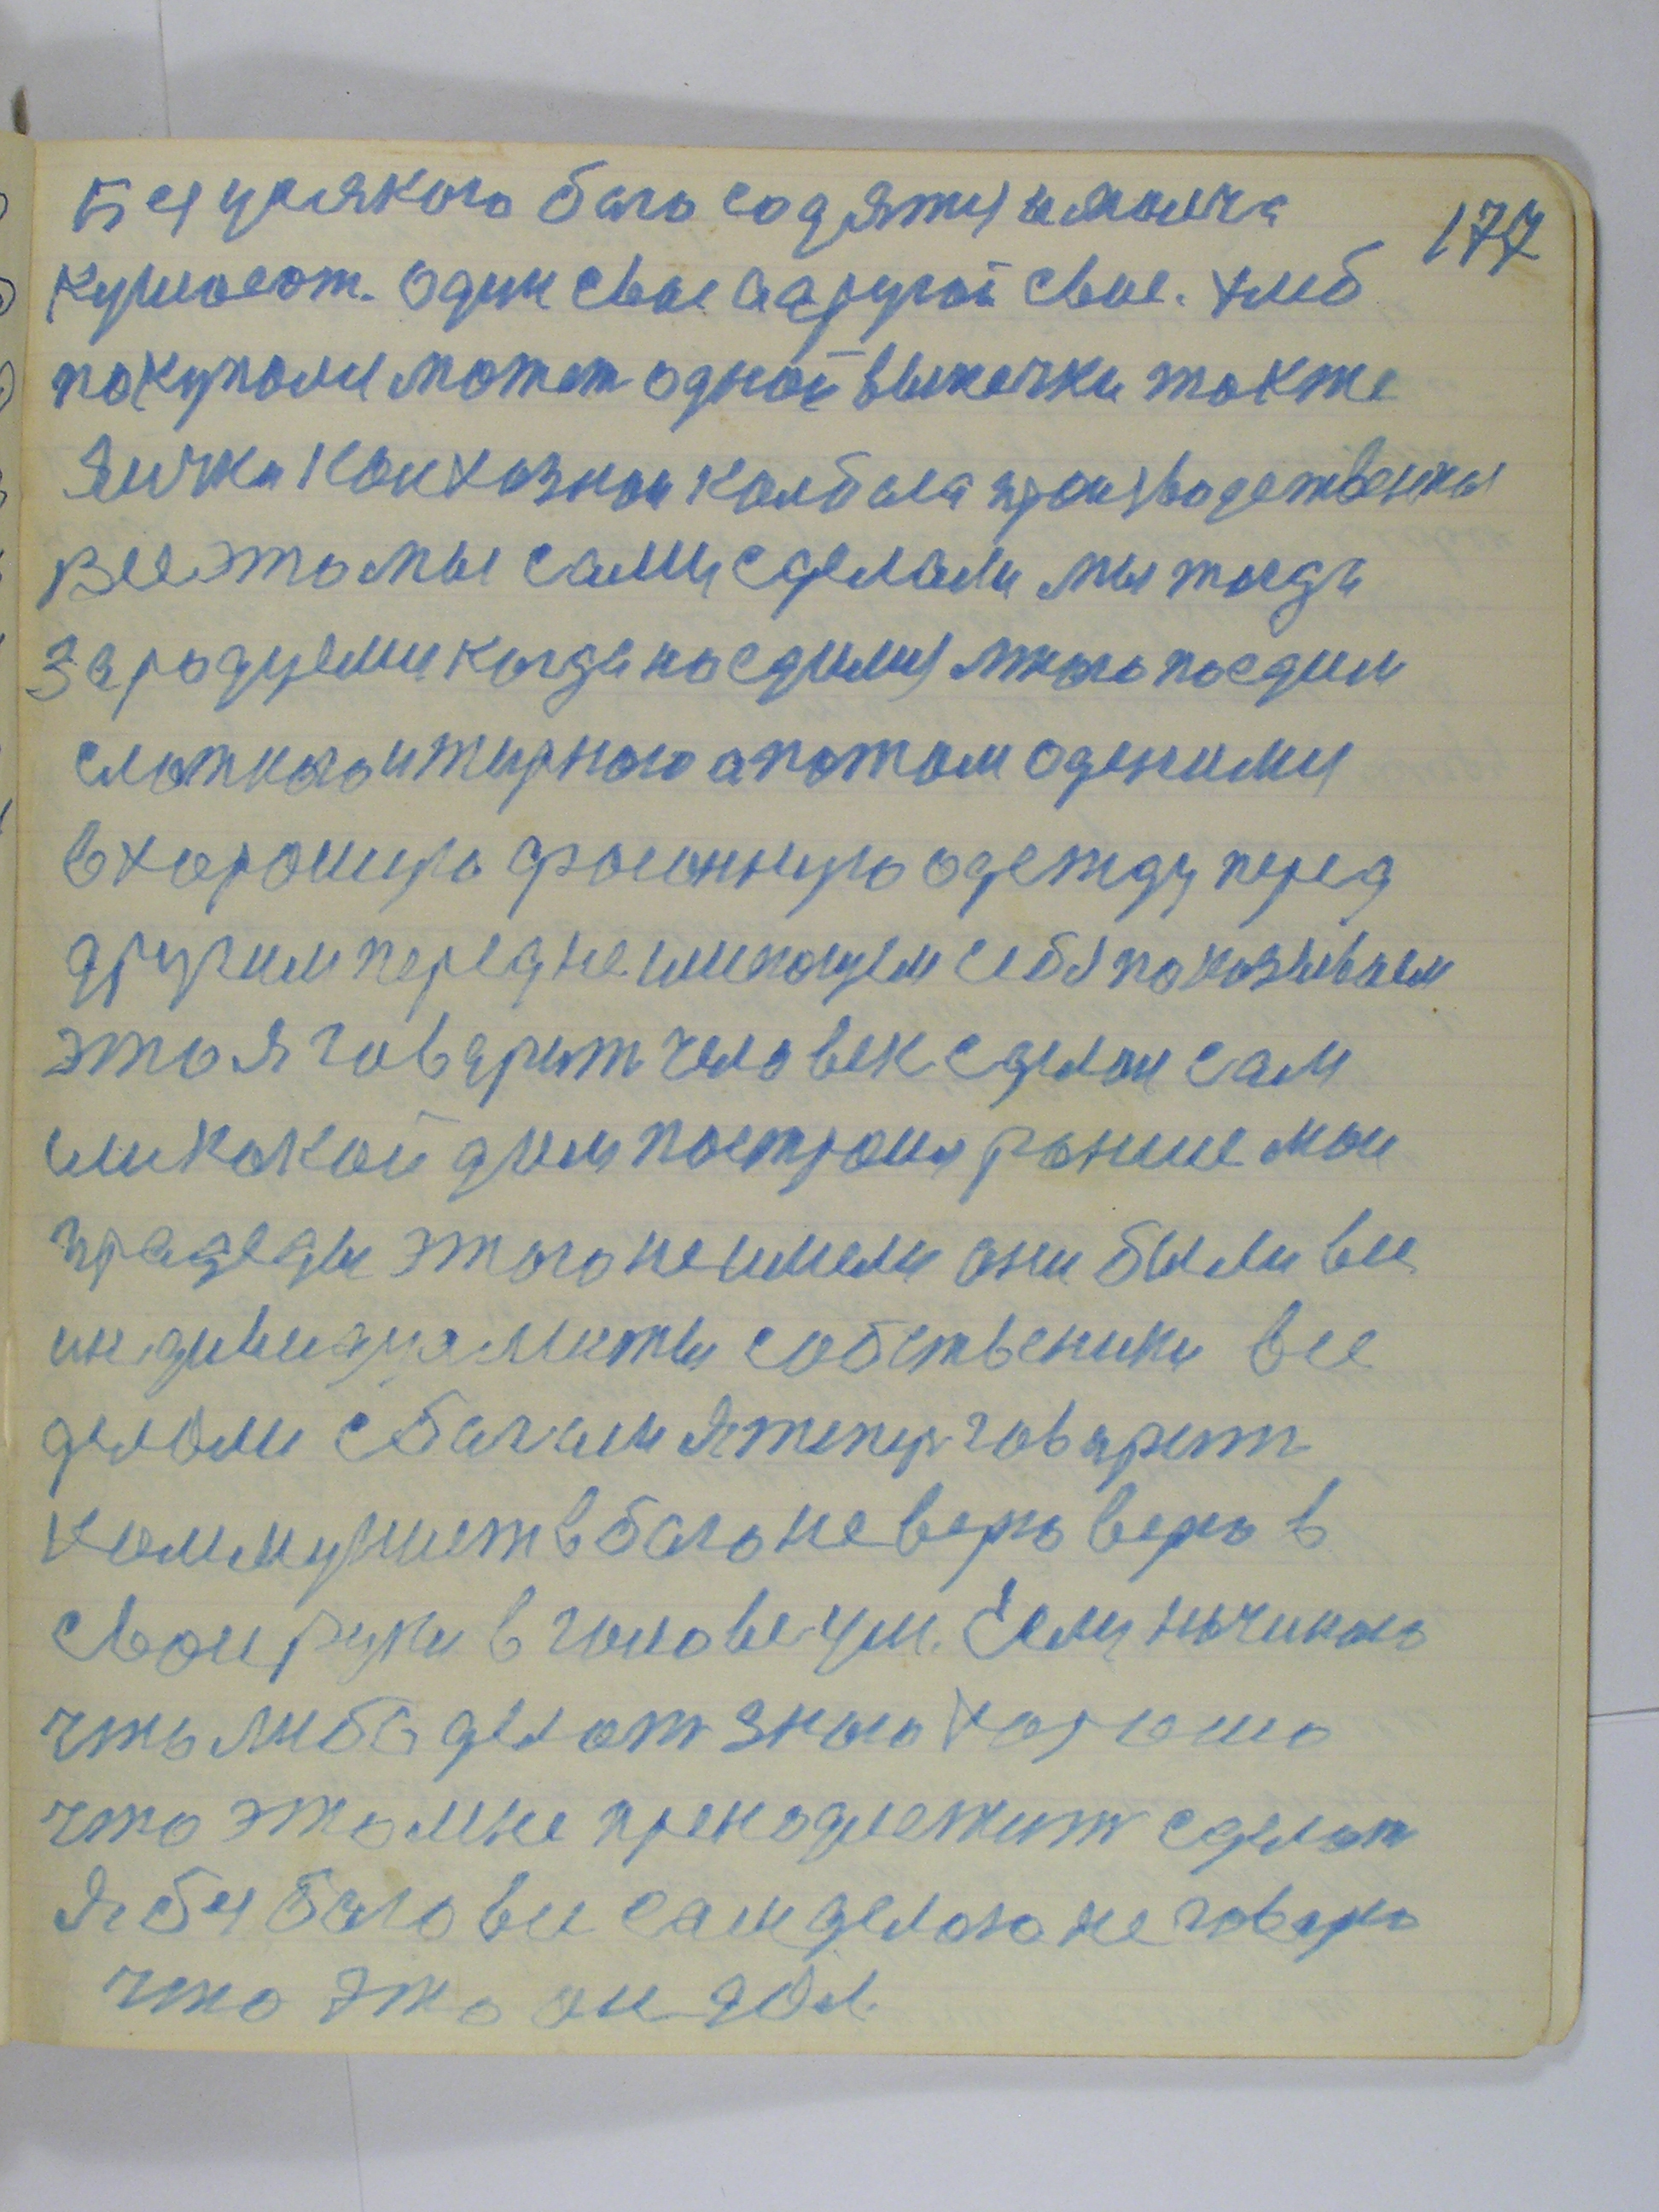 177
Без уся́кого бога садятся и молча
кушают. один свое а другой свое. хлеб
покупали может одной выпечки также
яички колхозная колбаса производственна
все это мы сами сделали мы тогда
за радуеми когда наедимся много поедим
слаткого и жирного а потом оденимся
в хорошию фасонную одежду перед
другим перед неимющем себя показываем
это я говарит человек сделал сам
или какой дом построил раньше мои
прадеды этого не имели они были все
индивидуалисты собственики все
делали с богам я теперь говарит
коммунист в бога не верю верю в
свои руки в голове ум. Если начинаю
что либо делат знаю хорошо
что это мне пренадлежит сделат
Я без бога все сам делаю не говарю
что это он дал.